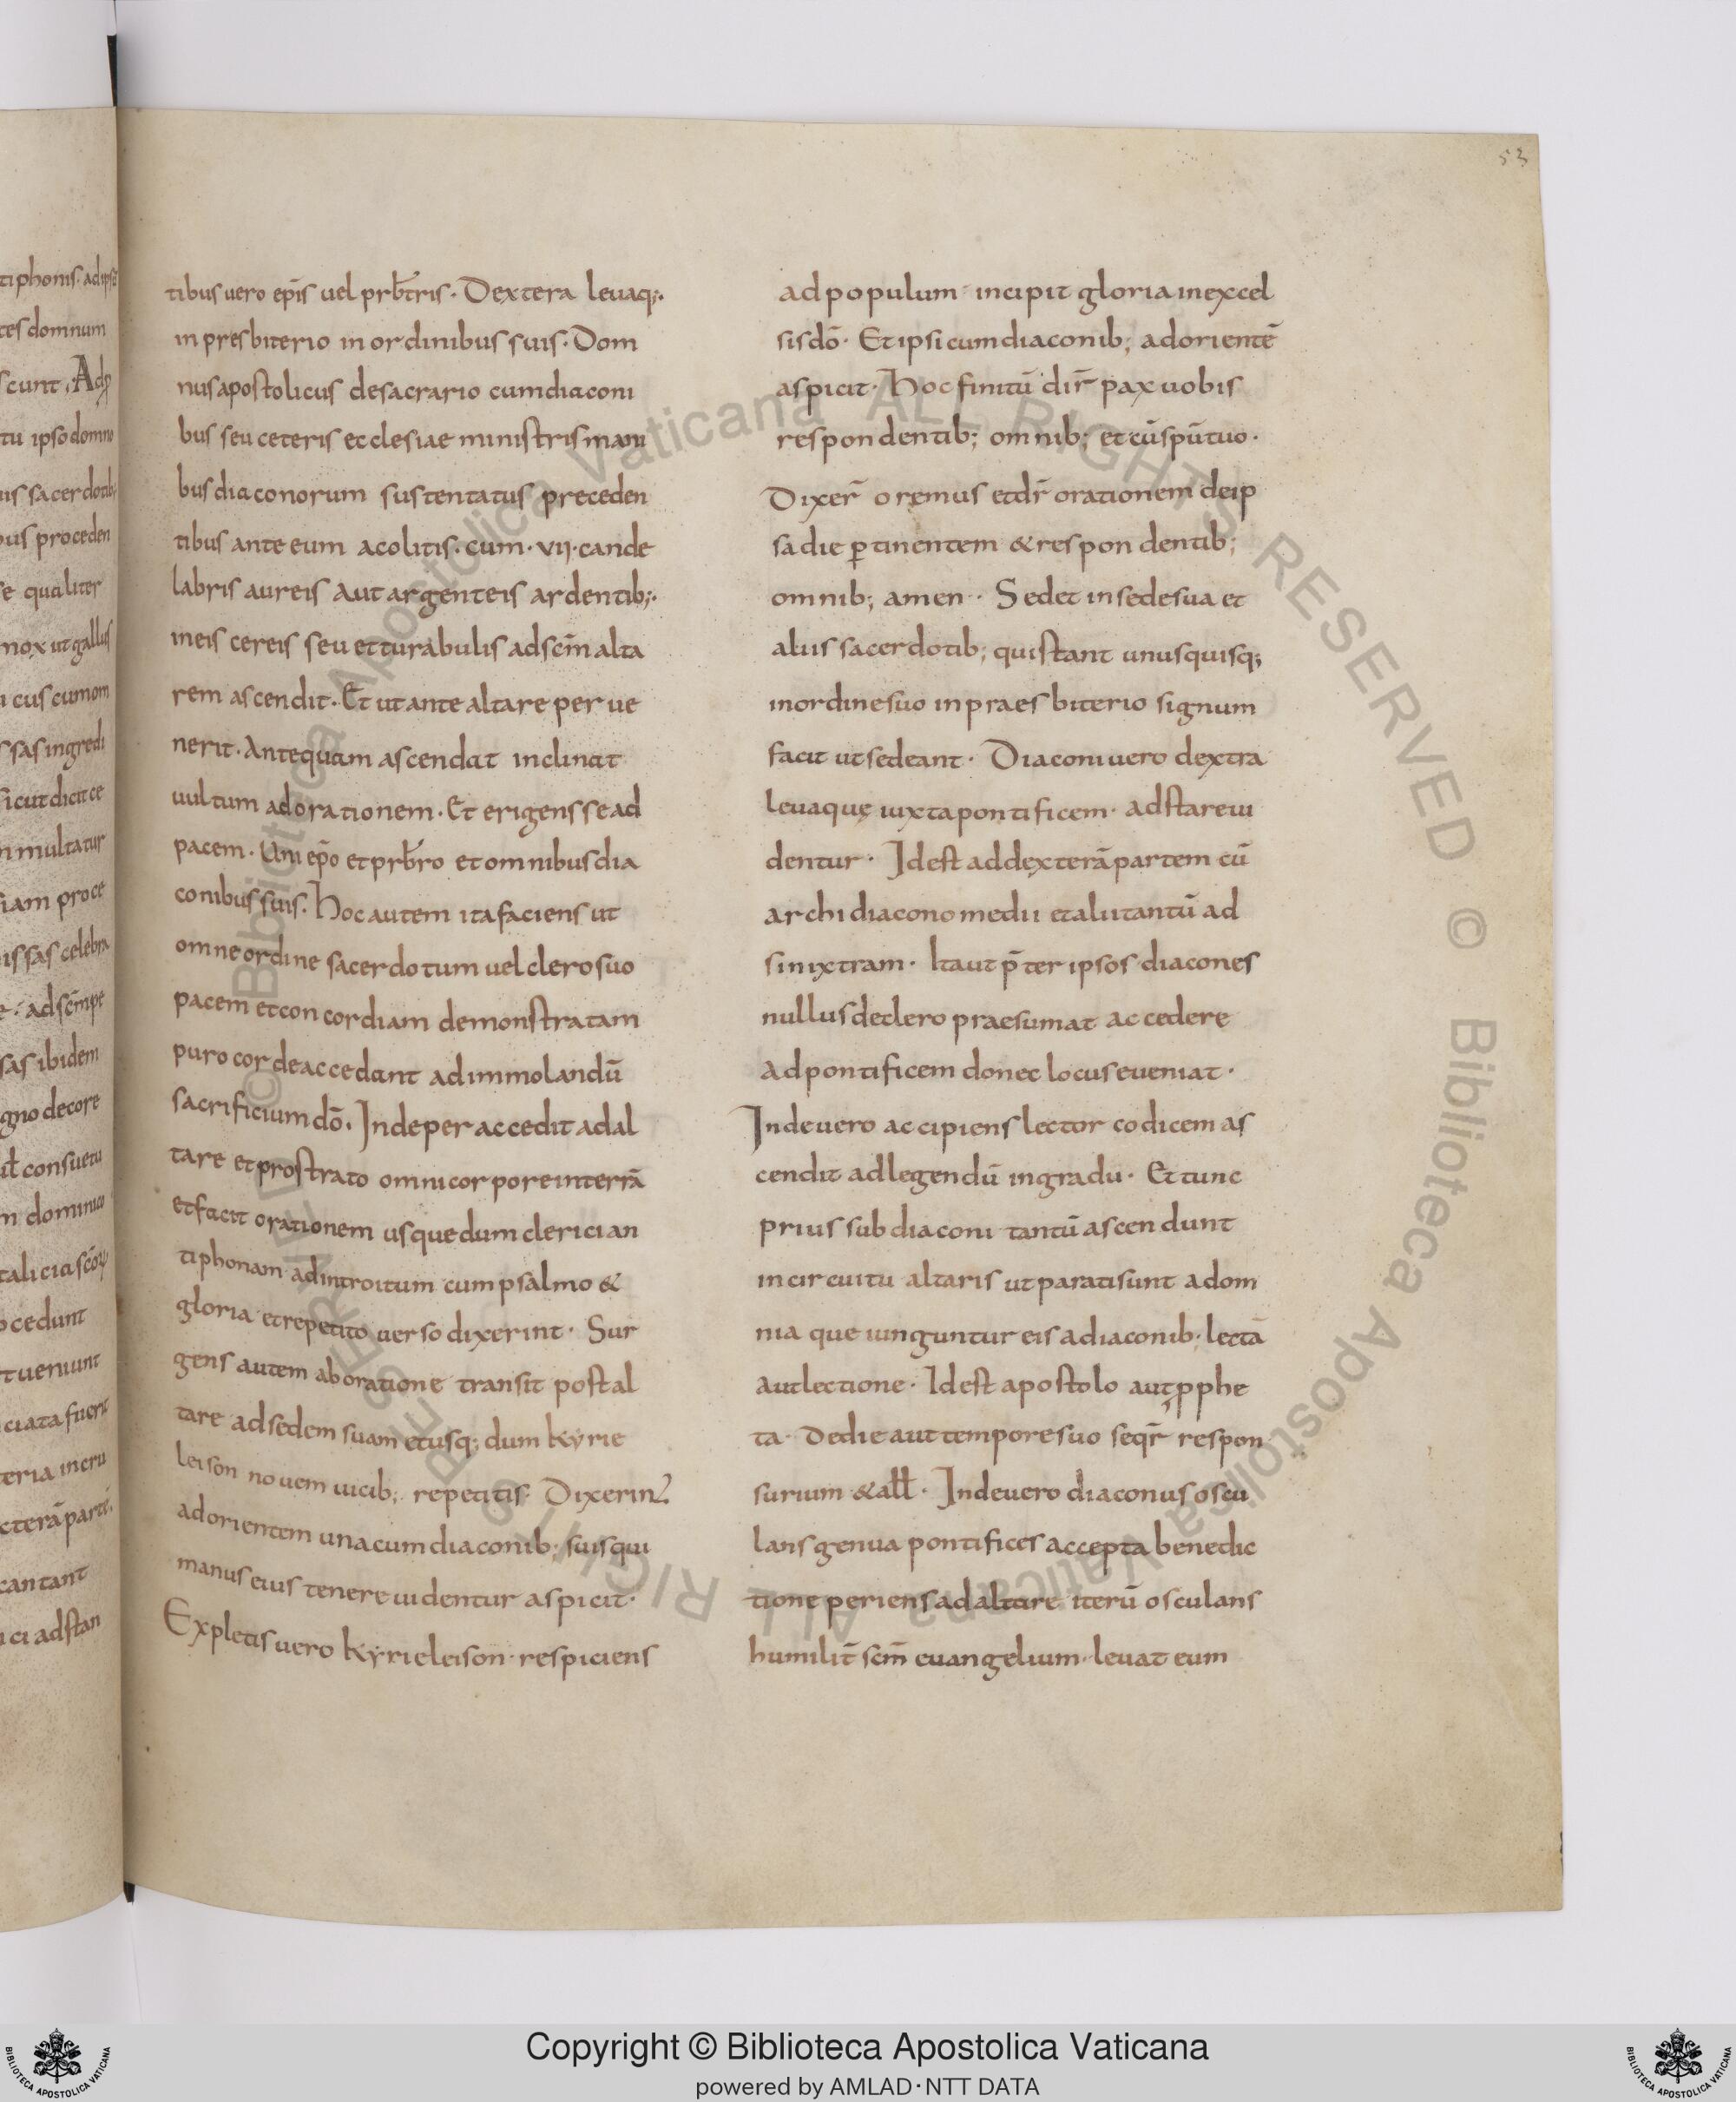 53
tiphonis. adipsū
tes domnum
scunt. Adp
tu ipso domno
is sacerdotib;
us proceden
e qualiter
mox ut gallus
cus cum om
sas ingredi
sicut dicit ce
multatur
iam proce
issas celebra
adscīm pe
sas ibidem
gno decore
ut consuetu
m dominico
talicia scōꝝ
ocedunt
t ueniunt
ciata fuerit
teria incru
cterā parte
cantant
ci adstan
tibus uero ep̄is uel prb̄tris. Dextera leuaq;.
in presbiterio in ordinibus suis. Dom
nus apostolicus de sacrario cum diaconi
bus seu ceteris ecclesiae ministris mani
bus diaconorum sustentatus preceden
tibus ante eum acolitis. cum. VII. cande
labris aureis aut argenteis ardentib;.
ineis cereis seu et turabulis ad scm̄ alta
rem ascendit. Et ut ante altare perue
nerit. Antequam ascendat inclinat
uultum ad orationem. Et erigens se ad
pacem. Uni ep̄o et prb̄ro et omnibus dia
conibus suis. Hoc autem ita faciens ut
omne ordine sacerdotum uel clero suo
pacem et concordiam demonstratam
puro corde accedant ad immolandū
sacrificium dō. Inde per accedit ad al
tare et prostrato omni corpore in terrā
et facit orationem usque dum clerici an
tiphonam ad introitum cum psalmo &
gloria et repetito uerso dixerint. Sur
gens autem ab oratione transit post al
tare ad sedem suam et usq; dum kyrie
leison nouem uicib; repetitis. Dixerint
ad orientem una cum diaconib; suis qui
manus eius tenere uidentur aspicit.
Expletis uero kyrieleison. respiciens
ad populum incipit gloria in excel
sis dō. Et ipsi cum diaconib; ad orientē
aspicit. Hoc finitū dir̄ pax uobis
respondentib; omnib; et cū spū tuo.
Dixer̄ oremus et dr̄ orationem de ip
sa die ꝑtinentem & respondentib;
omnib; amen. Sedet in sede sua et
aliis sacerdotib; qui stant unusquisq;
in ordine suo in praesbiterio signum
facit ut sedeant. Diaconi uero dextra
leuaquę iuxta pontificem. adstare ui
dentur. Id est ad dexterā partem cū
archidiacono medii et alii tantū ad
sinixtram. Ita ut p̄ter ipsos diacones
nullus de clero praesumat accedere
ad pontificem donec locus eueniat.
Inde uero accipiens lector codicem as
cendit ad legendū in gradu. Et tunc
prius subdiaconi tantū ascendunt
in circuitu altaris ut parati sunt a dom
nia que iunguntur eis a diaconib; lectā
aut lectione. Id est apostolo aut ꝓphe
ta. De die aut tempore suo seqr̄ respon
surium & all̄. Inde uero diaconus oscu
lans genua pontifices accepta benedic
tione periens ad altare iterū osculans
humilit̄ scm̄ euangelium. leuat eum
© Biblioteca Apostolica Vaticana ALL RIGHTS RESERVED © Biblioteca Apostolica Vaticana ALL RIGHTS RESERVED
BIBLIOTECA APOSTOLICA VATICANA
Copyright © Biblioteca Apostolica Vaticana
powered by AMLAD·NTT DATA
BIBLIOTECA APOSTOLICA VATICANA